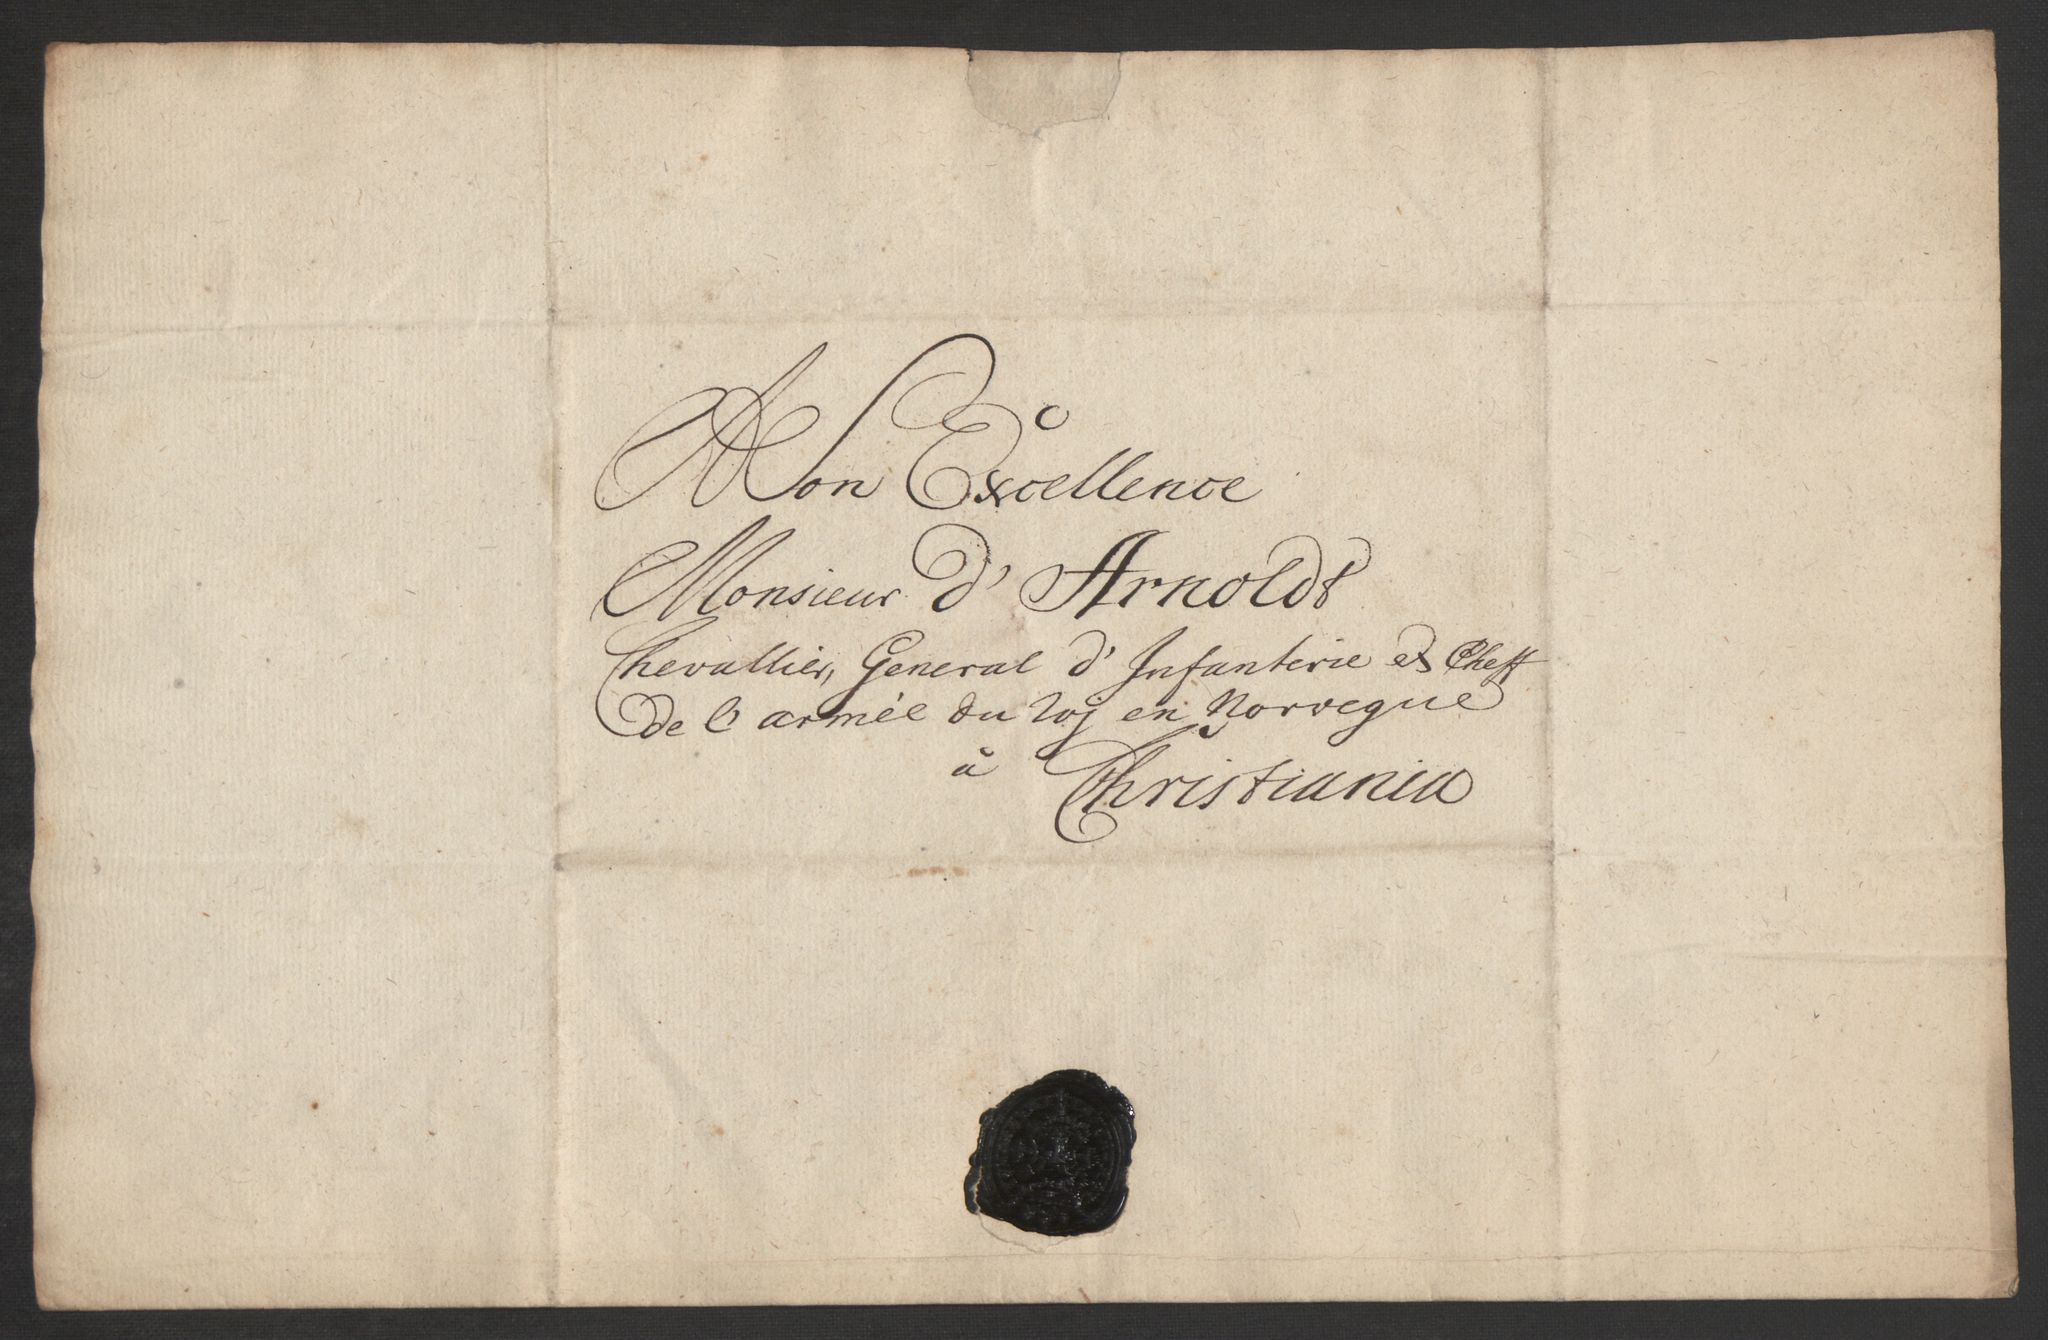 A Son Excellence
Monsieur d'Arnoldt
Chevallier, General d'Infanterie et Cheff
de l'armée du roj en Norvegue
à Christiania